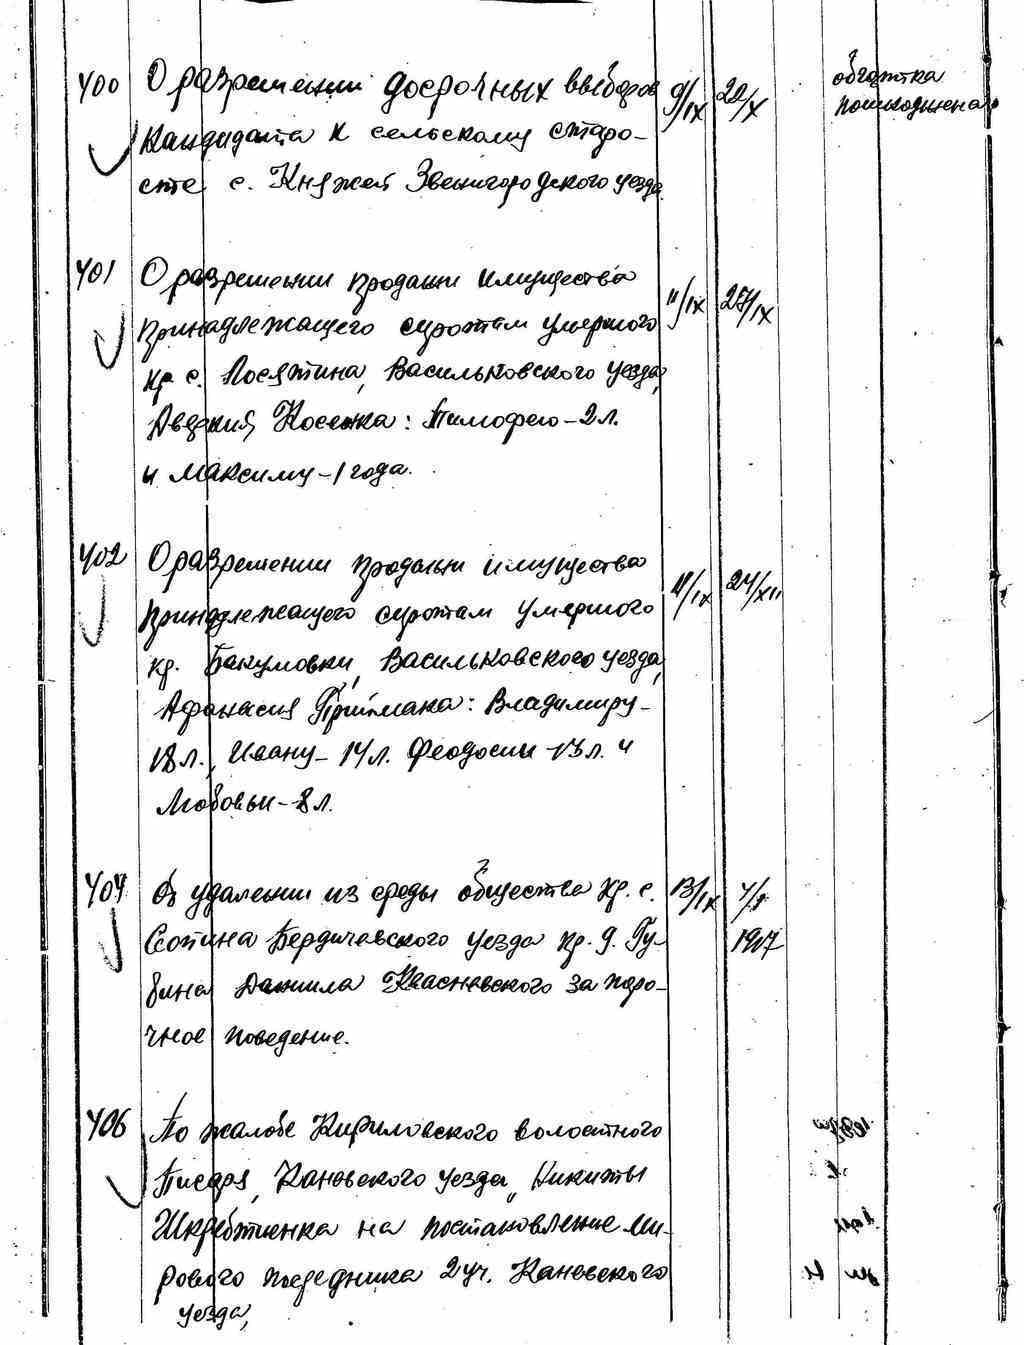 400 О разрешении досрочных выборов 9/IX 20/X обгортка
пошкоджена
кандидата к сельскому старо-
сте с. Княжей Звенигородского уезда
401 О разрешении продажи имущества
принадлежащего сиротам умершего 11/IX 27/IX
кр. с. Посяжина, Васильковского уезда,
Авдокия Косенка: Тимофею-2 л.
и Максиму-1 года.
402 О разрешении продажи имущества
принадлежащего сиротам умершего 11/IX 24/XII
кр. Бакумовки, Васильковского уезда,
Афанасия Приймака: Владимиру-
18 л., Ивану-14 л. Феодосии-13 л. и
Любовьи-8 л.
404 Об удалении из среды общества кр. с. 13/IX
Сотина Бердичевского уезда кр. д. Гу- 1907
бина Даниила Квасневского за поро-
чное поведение.
406 По жалобе Кириловского волостного
писаря, Каневского уезда, Никиты
Шкребтиенка на постановление ми-
рового посредника 2 уч. Каневского
уезда,